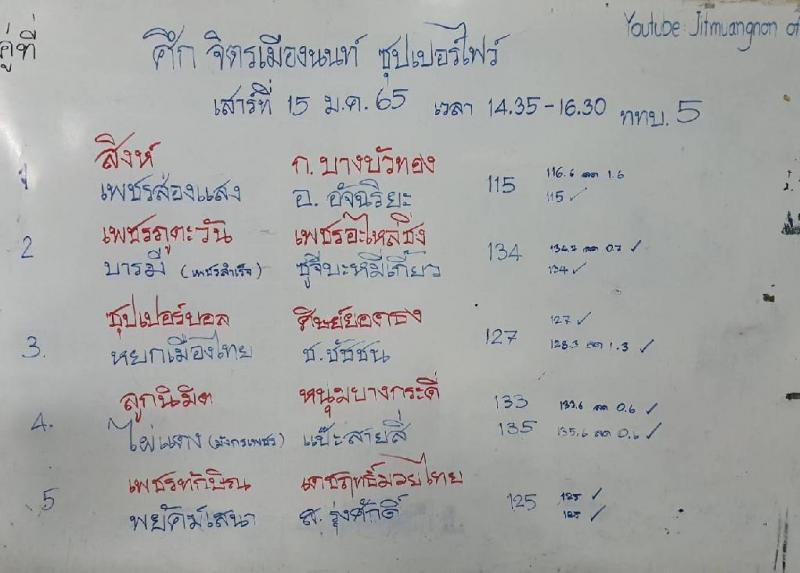 Youtube: Jitmuangnon of
คู่ที่
ศึก จิตรเมืองนนท์ ซุปเปอร์ไฟว์
เสาร์ที่ 15 ม.ค. 65 เวลา 14.35-16.30 ททบ. 5
สิงห์ ก. บางบัวทอง
1 115 116.6 ลด 1.6
เพชรส่องแสง อ. อัจฉริยะ 115 ✓
เพชรภูตะวัน เพชรอะไหล่ซิ่ง
2 134 134.7 ลด 0.7 ✓
บารมี (เพชรสำเร็จ) ซู้จีบะหมี่เกี๊ยว 134 ✓
ซุปเปอร์บอล ศิษย์ยอดธง 127 ✓
3. 127
หยกเมืองไทย ช. ชัชชน 128.3 ลด 1.3 ✓
ลูกนิมิต หนุ่มบางกระดี่ 133 133.6 ลด 0.6 ✓
4.
ไผ่แดง (มังกรเพชร) แป๊ะสายสี่ 135 135.6 ลด 0.6 ✓
เพชรทักษิณ เดชฤทธิ์มวยไทย
5 125 125 ✓
พยัคฆ์เสนา ส. รุ่งศักดิ์ 125 ✓